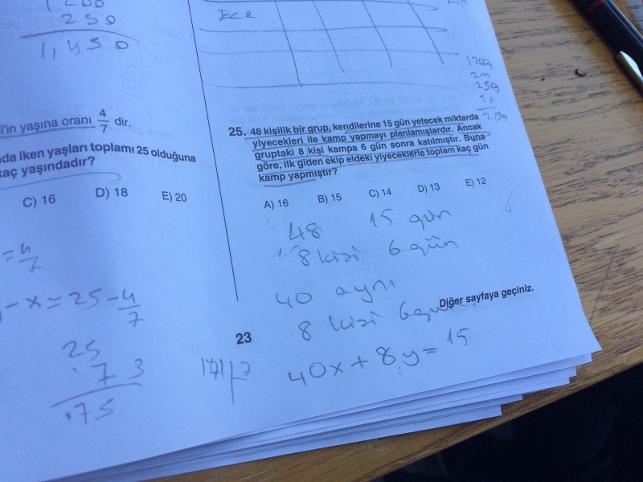 200
250
1,450
Ece
25g
'in yaşına oranı 4/7 dir.
da iken yaşları toplamı 25 olduğuna
kaç yaşındadır?
C) 16 D) 18 E) 20
= 4/7
- x = 25 - 4/7
25
.73
.75
25. 48 kişilik bir grup, kendilerine 15 gün yetecek miktarda
yiyecekleri ile kamp yapmayı planlamışlardır. Ancak
gruptaki 8 kişi kampa 6 gün sonra katılmıştır. Buna
göre, ilk giden ekip eldeki yiyeceklerle toplam kaç gün
kamp yapmıştır?
A) 16 B) 15 C) 14 D) 13 E) 12
48 15 gün
8 kişi 6 gün
40 aynı
Diğer sayfaya geçiniz.
8 kişi 6 gün
23
40x + 8y = 15